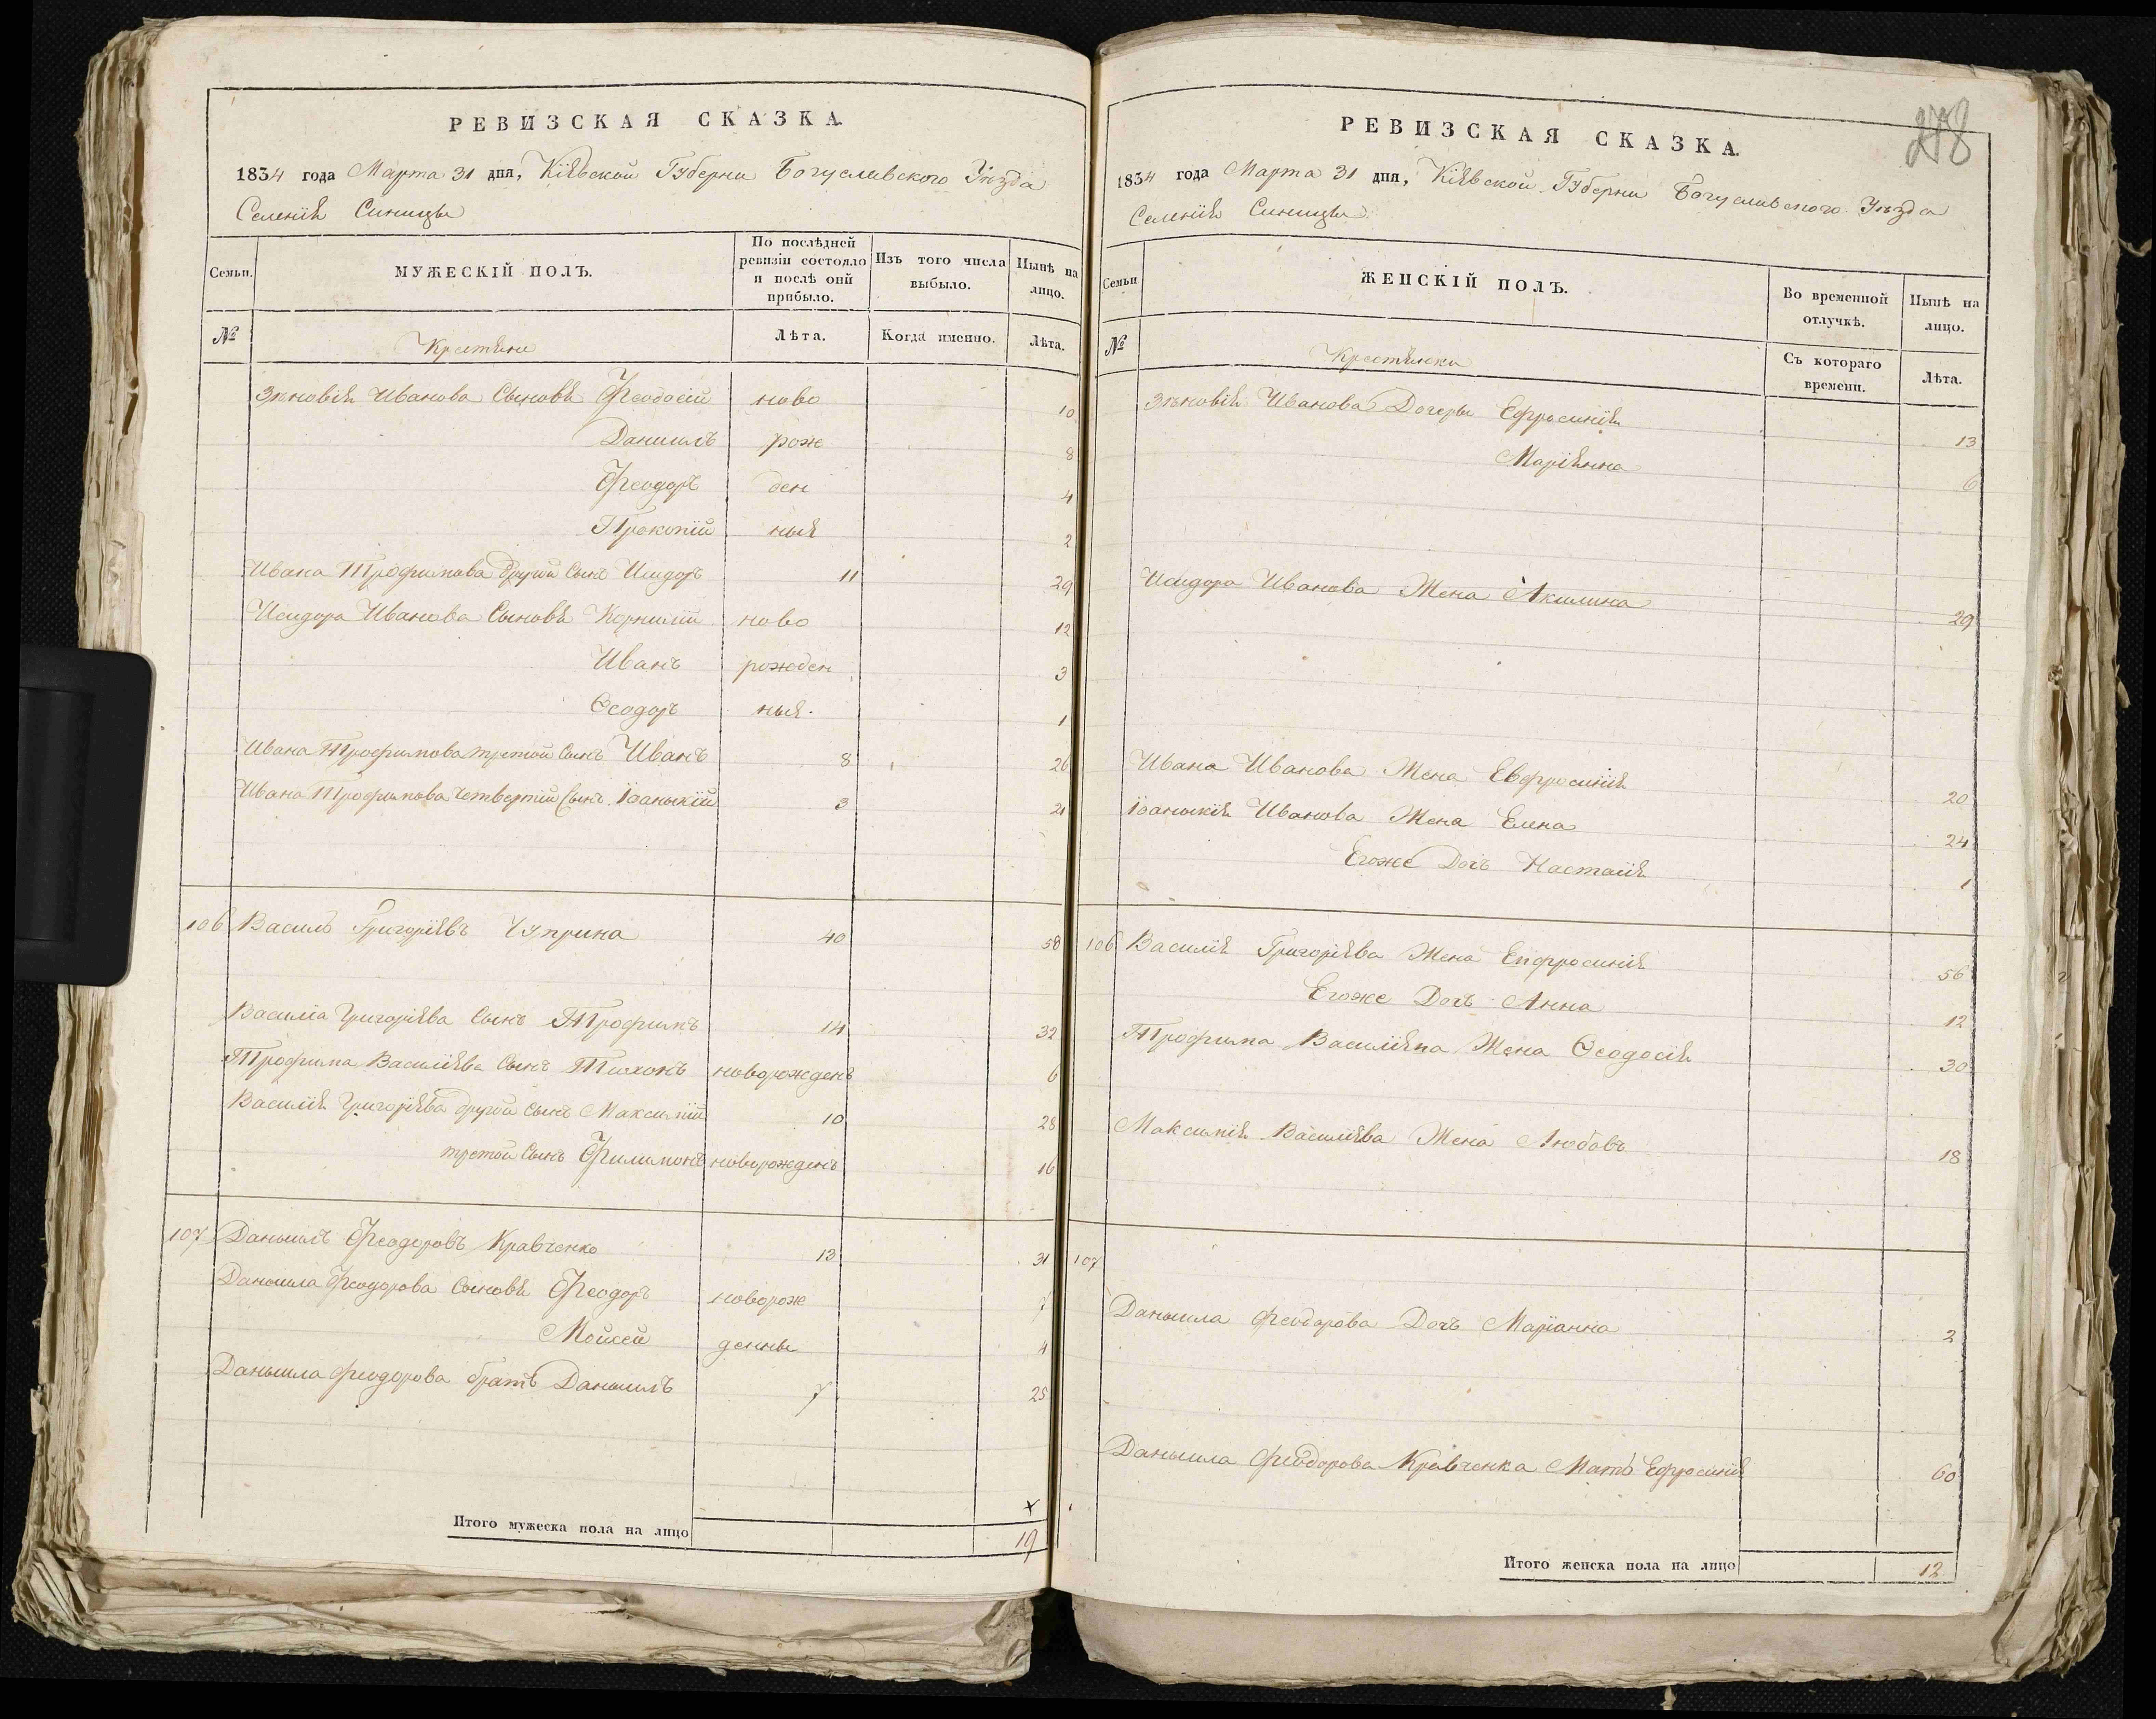 РЕВИЗСКАЯ СКАЗКА.
1834 года Марта 31 дня, Кіѣвской Губерни Богуславского Уѣзда
Селенія Синицы
Семьи.
МУЖЕСКІЙ ПОЛЪ.
По послѣдней ревизіи состояло и послѣ онй прибыло.
Изъ того числа выбыло.
Нынѣ на лицо.
№
Крестяне
Лѣта.
Когда именно.
Лѣта.
Зѣновія Иванова Сыновя Феодосій ново 10
Даниилъ рож 8
Феодоръ ден 4
Прокопій ныя 2
Ивана Трофимова другій Сынъ Исидоръ 11 29
Исидора Иванова Сыновя Корнилій ново 12
Иванъ рожден 3
Ѳеодоръ ныя. 1
Ивана Трофимова третій Сынъ Иванъ 8 26
Ивана Трофимова Четвертій Сынъ Іоаникій 3 21
106 Василь Григоріявъ Чуприна 40 58
Василіа Григоріява Сынъ Трофимъ 14 32
Трофима Василіява Сынъ Тихонъ новорожденъ 6
Василія Григоріява другій Сынъ Максимій 10 28
третій Сынъ Филимонъ новорожденъ 16
107 Даніилъ Феодоровъ Кравченко 13 31
Даніила Феодорова Сыновя Феодоръ новорож 7
Мойсей денны 4
Даніила Феодорова братъ Даніилъ 7 25
Итого мужеска пола на лицо 19
278
РЕВИЗСКАЯ СКАЗКА.
1834 года Марта 31 дня, Кіѣвской Губерни Богуславского Уѣзда
Селенія Синицы
Семьи
ЖЕНСКІЙ ПОЛЪ.
Во временной отлучкѣ.
Нынѣ на лицо.
№
Крестянки
Съ котораго времени.
Лѣта.
Зѣновія Иванова Дочеры Ефросинія 13
Маріянна 6
Исидора Иванова Жена Акилина 29
Ивана Иванова Жена Евфросинія 20
Іоаникія Иванова Жена Елена 24
Егоже Дочъ Настасія 1
106 Василія Григоріява Жена Ефросинія 56
Егоже Дочъ Анна 12
Трофима Василіява Жена Ѳеодосія 30
Максимія Василіява Жена Любовъ 18
107
Даніила Феодорова Дочъ Маріанна 2
Даніила Феодорова Кравченка Мать Ефросинія 60
Итого женска пола на лицо 12